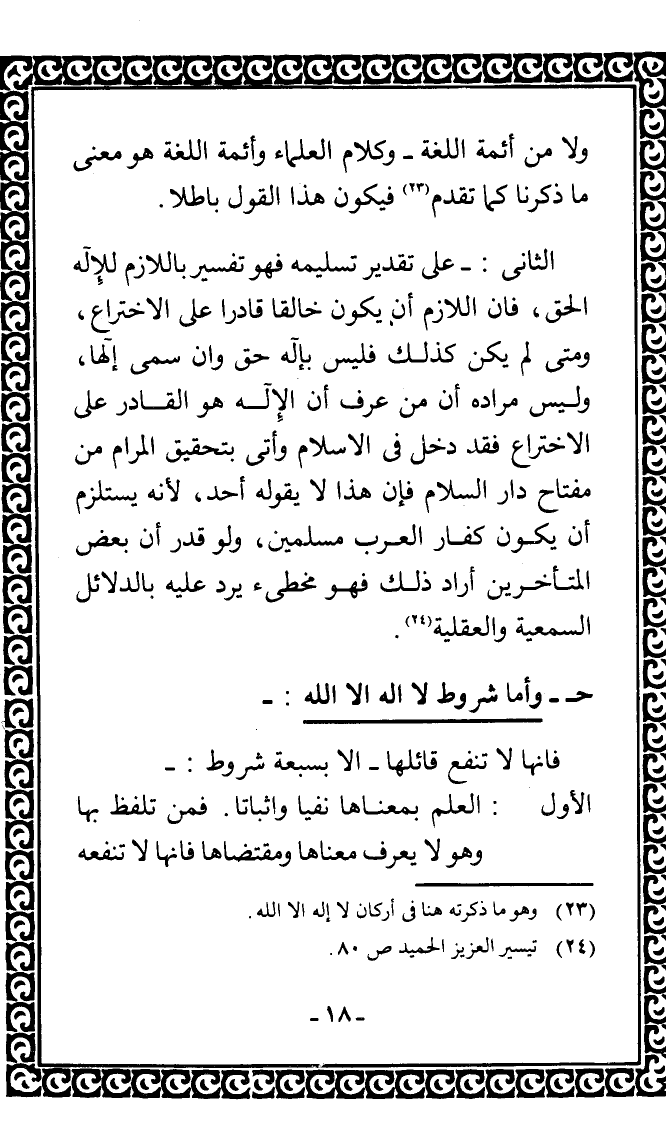 ولا من أئمة اللغة ـ وكلام العلماء وأئمة اللغة هو معنى
ما ذكرنا كما تقدم(٢٣) فيكون هذا القول باطلا .
الثانى : ـ على تقدير تسليمه فهو تفسير باللازم للإلٓه
الحق، فان اللازم أن يكون خالقا قادرا على الاختراع،
ومتى لم يكن كذلك فليس بإلٓه حق وان سمى إلٓها،
وليس مراده أن من عرف أن الإلٓه هو القادر على
الاختراع فقد دخل فى الاسلام وأتى بتحقيق المرام من
مفتاح دار السلام فإن هذا لا يقوله أحد، لأنه يستلزم
أن يكون كفار العرب مسلمين، ولو قدر أن بعض
المتأخرين أراد ذلك فهو مخطىء يرد عليه بالدلائل
السمعية والعقلية(٢٤) .
حـ ـ وأما شروط لا اله الا الله : ـ
فانها لا تنفع قائلها ـ الا بسبعة شروط : ـ
الأول : العلم بمعناها نفيا واثباتا. فمن تلفظ بها
وهو لا يعرف معناها ومقتضاها فانها لا تنفعه
(٢٣) وهو ما ذكرته هنا فى أركان لا إله الا الله .
(٢٤) تيسير العزيز الحميد ص ٨٠ .
ـ ١٨ ـ